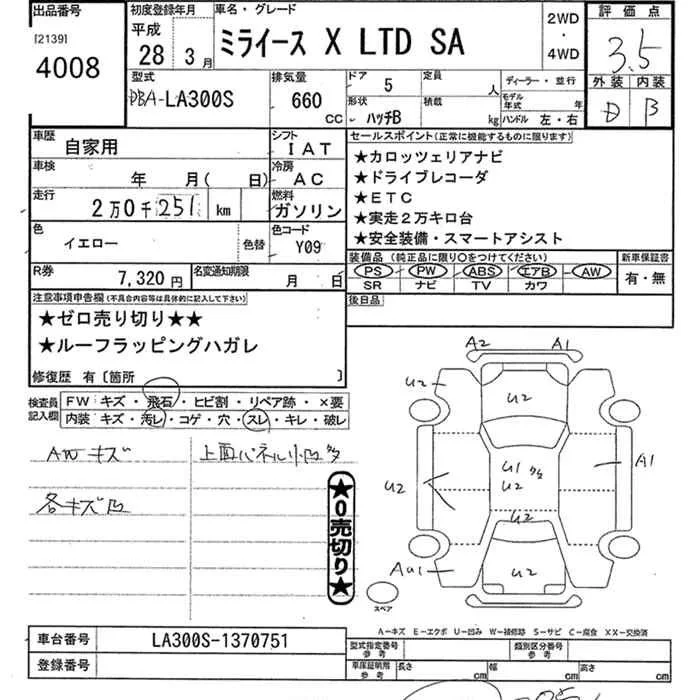 出品番号
[2139]
4008
初度登録年月
平成
28 3月
車名・グレード
ミライース X LTD SA
2WD
・
4WD
評価点
3.5
外装 内装
D B
型式
DBA-LA300S
排気量
660
cc
ドア 5
定員 人
ディーラー・並行
形状 ハッチB
積載 kg
モデル年式 年
ハンドル 左・右
車歴
自家用
シフト
IAT
車検
年 月( 日)
冷房
AC
走行
2万0千251 km
燃料
ガソリン
色
イエロー
色替
色コード
Y09
R券
7,320円
名変通知期限
月 日
セールスポイント(正常に機能するものに限ります)
★カロッツェリアナビ
★ドライブレコーダ
★ETC
★実走2万キロ台
★安全装備・スマートアシスト
装備品 (純正品に限り○をつけてください)
新車保証書
PS PW ABS エアB AW
SR ナビ TV カワ
有・無
後日品
注意事項申告欄(不具合内容等は具体的に記入して下さい)
★ゼロ売り切り★★
★ルーフラッピングハガレ
修復歴 有〔箇所 〕
検査員
記入欄
FW キズ・飛石・ヒビ割・リペア跡・×要
内装 キズ・汚レ・コゲ・穴・スレ・キレ・破レ
AWキズ
各キズ凹
上面パネル小凹多
★0売切り★
A2 A1
U2
U2
U1 多
U2
U2
A1
U2
AU1
U2
スペア
A−キズ E−エクボ U−凹み W−補修跡 S−サビ C−腐食 XX−交換済
車台番号
LA300S-1370751
登録番号
型式指定番号
参考
類別区分番号
参考
車庫証明用
参考
長さ cm
幅 cm
高さ cm